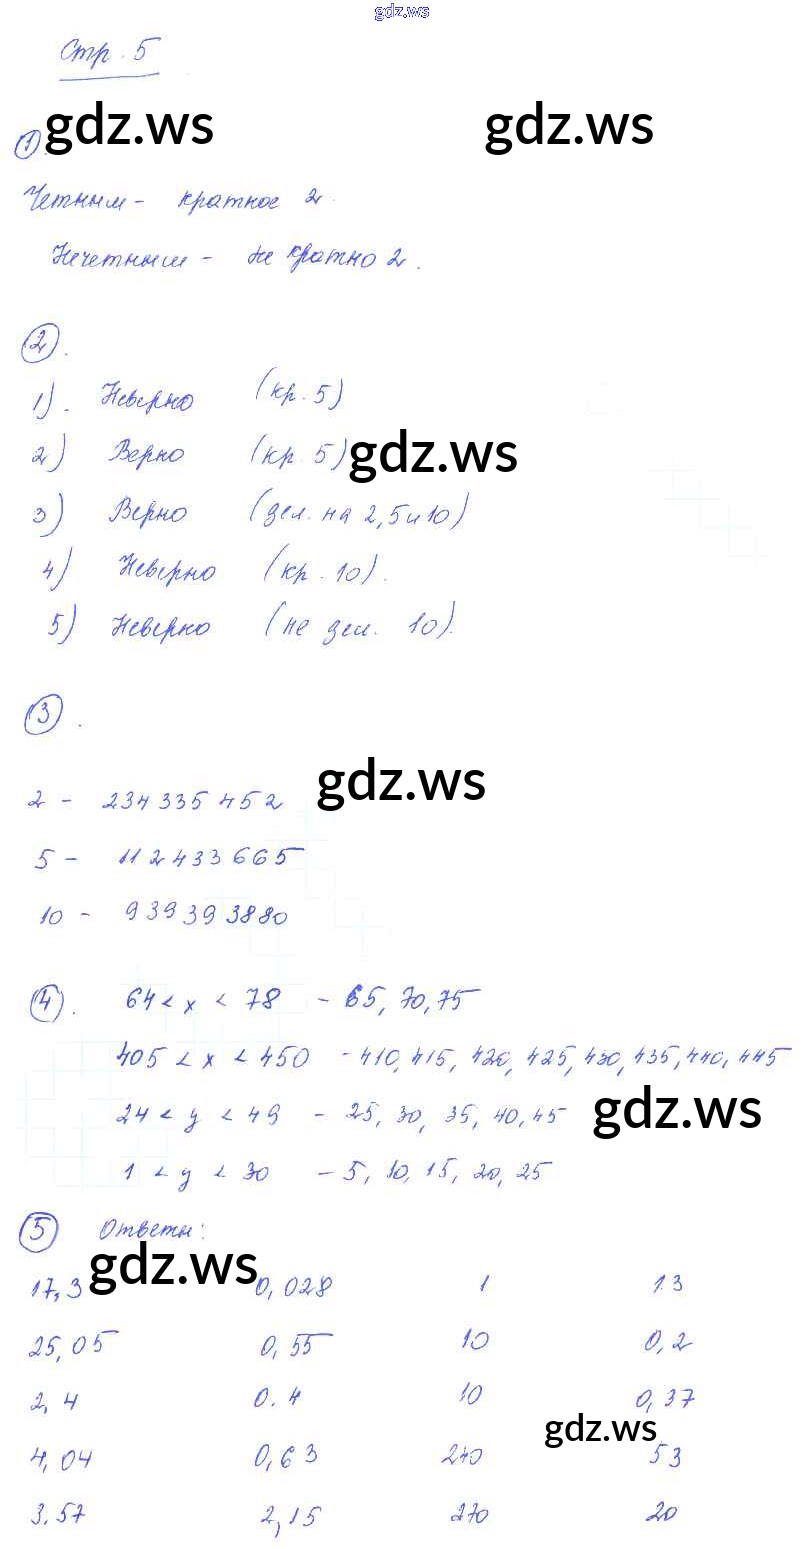 gdz.ws
Стр. 5
gdz.ws gdz.ws
1.
Четным - кратное 2.
Нечетным - не кратно 2.
2.
1). Неверно (кр. 5)
2) Верно (кр. 5) gdz.ws
3) Верно (дел. на 2,5 и 10)
4) Неверно (кр. 10).
5) Неверно (не дел. 10).
3.
gdz.ws
2 - 234 335 452
5 - 112 433 665
10 - 939 393 880
4). 64 < x < 78 - 65, 70, 75
405 < x < 450 - 410, 415, 420, 425, 430, 435, 440, 445
24 < y < 49 - 25, 30, 35, 40, 45 gdz.ws
1 < y < 30 - 5, 10, 15, 20, 25
5 Ответы:
gdz.ws
17,3 0,028 1 13
25,05 0,55 10 0,2
2,4 0.4 10 0,37
gdz.ws
4,04 0,63 240 53
3.57 2,15 270 20